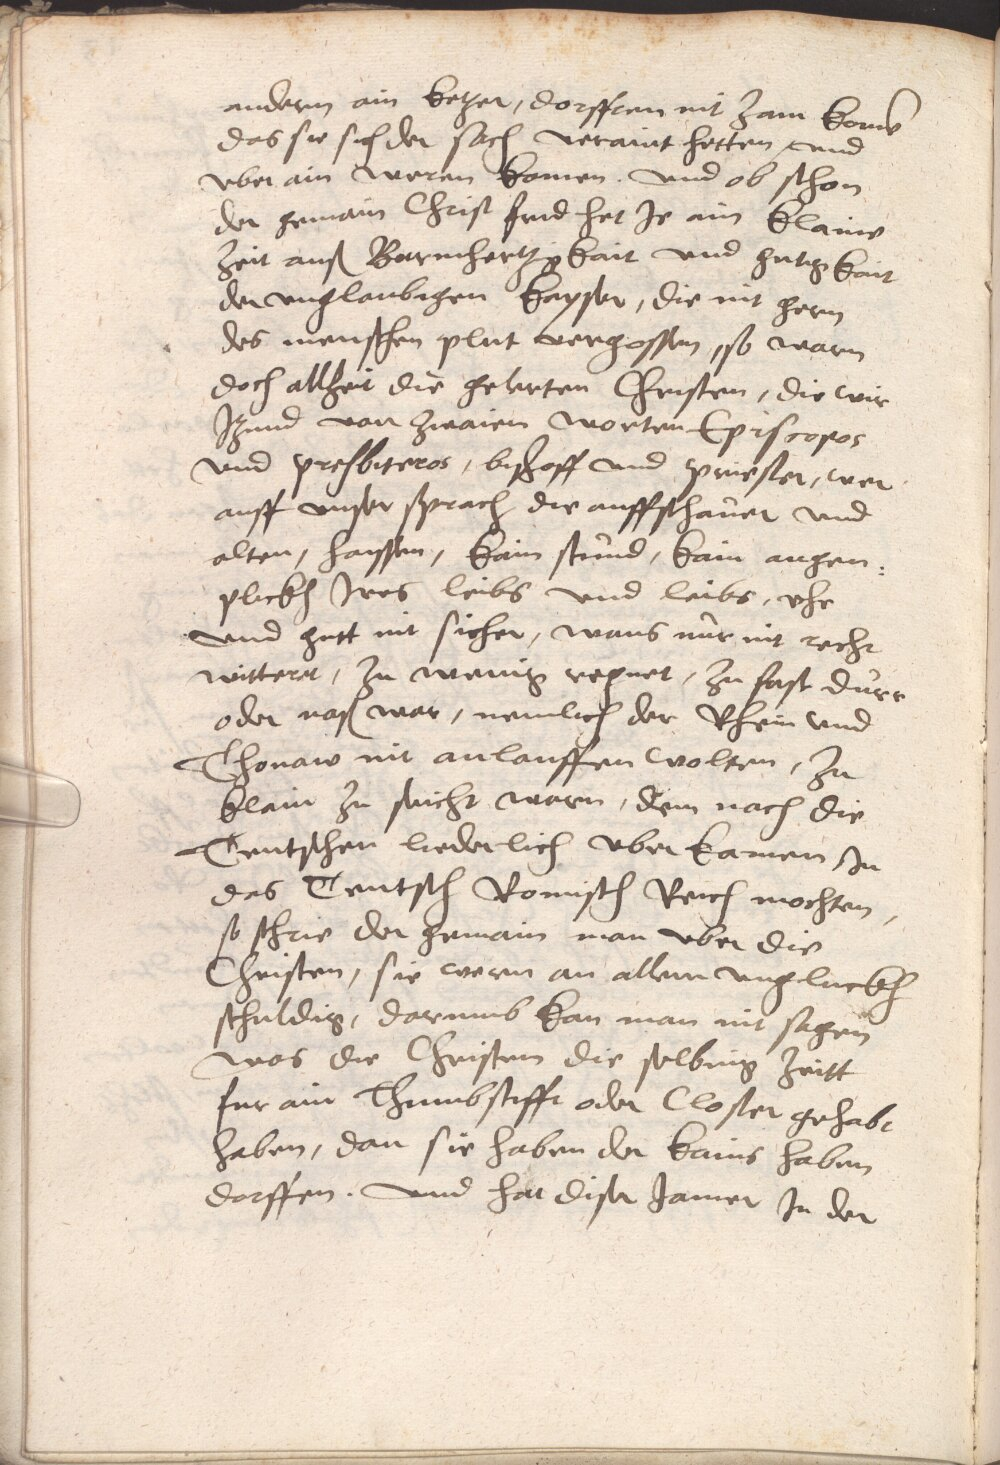 andern ain ketzer, dorfften nit zam komē
das sie sich der sach veraint hetten und
uber ain weren komen. und ob schon
der gemain Christ frid het Je ain klaine
Zeit auß Barmhertzykait und gutigkait
der unglaubigen kayser, die nit gern
des menschen plut vergossen, so warn
doch allzeit die gelerten Christen, die wir
Jtzund von zwaien worten Episcopos
und presbiteros, bischoff und priester, wer
auff unser sprach die auffschauer und
alten, haissen, kain stund, kain augen:
plickh Jres leibs und leibs, ehr
und gutt nit sicher, wans nur nit recht
witteret, zu wenig regnet, zu fast durr
oder naß war, nemlich der Rhein und
Thonaw nit anlauffen wolten, zu
klain zu seicht warn, dem nach die
Teutschen liederlich uber kamen, Jn
das Teutsch Romisch Reich mochten,
so schrie der gemain man uber die
Christen, sie wern an allem ungluckh
schuldig, darumb kan man nit sagen
was die Christen die selbing zeitt
fur ain Thumbstifft oder Closter gehabt
haben, dan sie haben der kains haben
dorffen. und hat diser Jamer Jn der